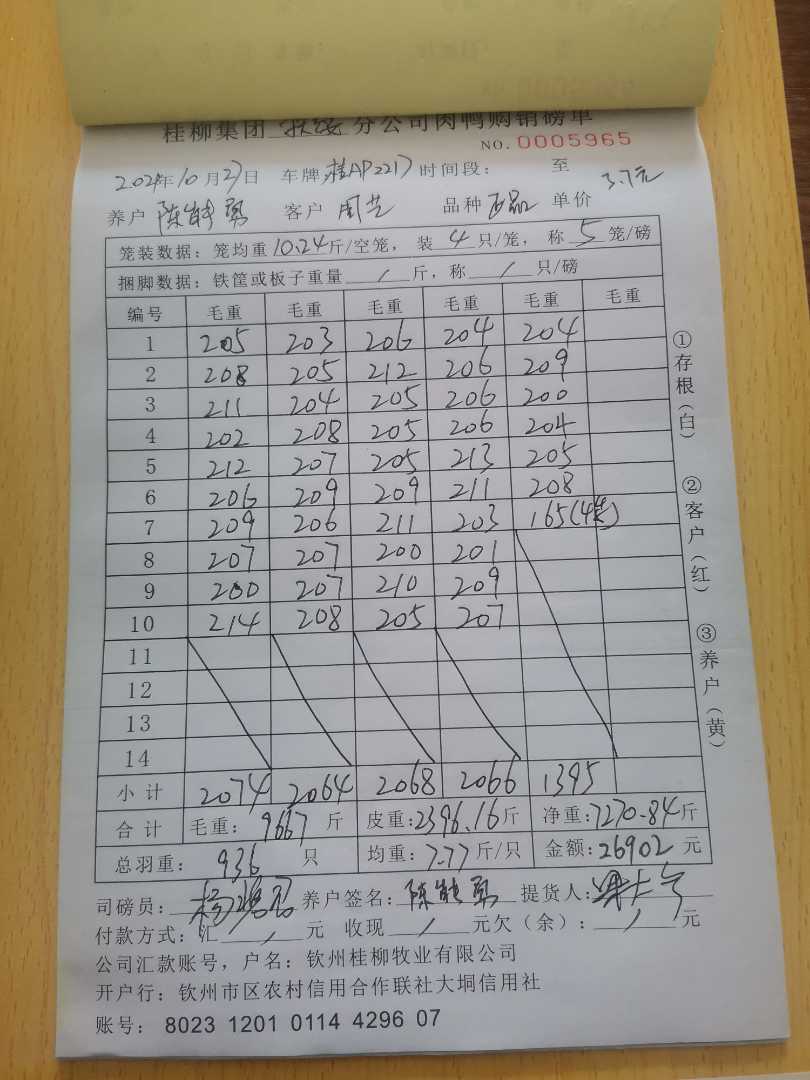 桂柳集团 分公司肉鸭购销磅单
NO. 0005965
2024年10月27日 车牌桂AP2217时间段： 至
养户 陈能勇 客户 周艺 品种 正品 单价 3.7元
笼装数据：笼均重10.24斤/空笼，装 4 只/笼，称 5 笼/磅
捆脚数据：铁筐或板子重量 / 斤，称 / 只/磅
编号 毛重 毛重 毛重 毛重 毛重 毛重
1 205 203 206 204 204
2 208 205 212 206 209
3 211 204 205 206 200
4 202 208 205 206 204
5 212 207 205 213 205
6 206 209 209 211 208
7 209 206 211 203 165(4笼)
8 207 207 200 201
9 200 207 210 209
10 214 208 205 207
11
12
13
14
小计 2074 2064 2068 2066 1395
合计 毛重：9667 斤 皮重：2396.16斤 净重：7270.84斤
总羽重：936 只 均重：7.77斤/只 金额：26902 元
司磅员： 养户签名：陈能勇 提货人：
付款方式：汇 / 元 收现 / 元欠（余）： / 元
公司汇款账号，户名：钦州桂柳牧业有限公司
开户行：钦州市区农村信用合作联社大垌信用社
账号： 8023 1201 0114 4296 07
①存根（白）
②客户（红）
③养户（黄）